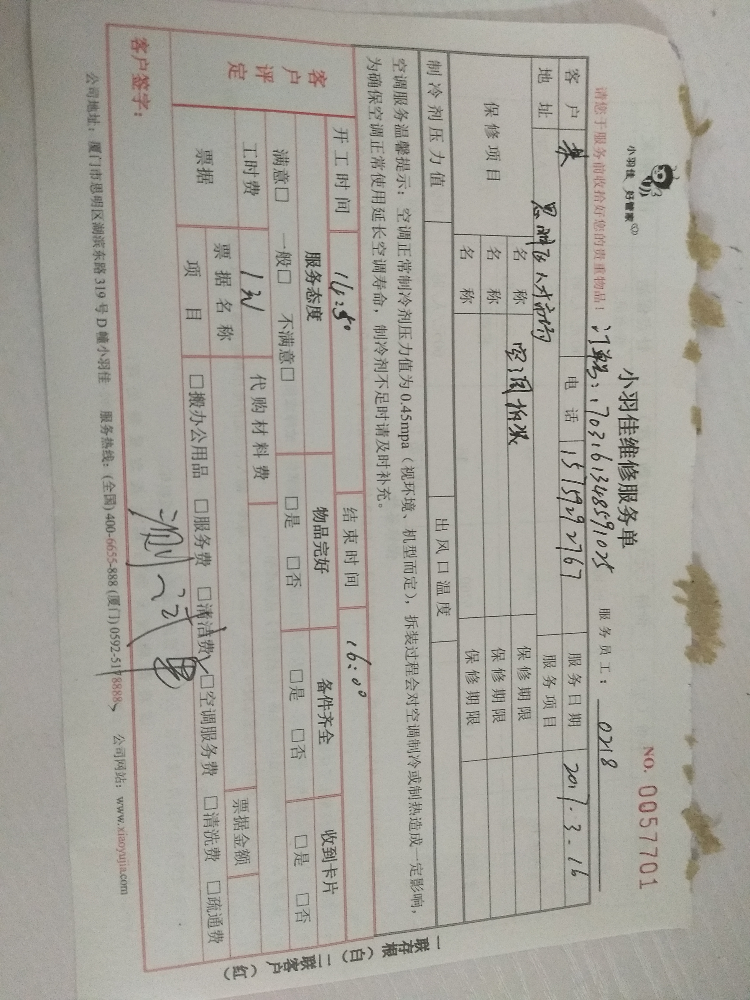 小羽佳 好管家
小羽佳维修服务单
NO. 0057701
订单号:1703161348591025
请您于服务前收拾好您的贵重物品!
服务员工: 0218
客户 电话 15759292767 服务日期 2017.3.16
地址 思明区人才市场 服务项目
保修项目 名称 空调拆装 保修期限
名称 保修期限
名称 保修期限
制冷剂压力值 出风口温度
空调服务温馨提示:空调正常制冷剂压力值为0.45mpa(视环境、机型而定),拆装过程会对空调制冷或制热造成一定影响,
为确保空调正常使用延长空调寿命,制冷剂不足时请及时补充。
开工时间 14:50 结束时间 16:00
客户评定 服务态度 物品完好 备件齐全 收到卡片
满意□ 一般□ 不满意□ □是 □否 □是 □否 □是 □否
工时费 代购材料费
票据 票据名称 票据金额
项目 □搬办公用品 □服务费 □清洁费 □空调服务费 □清洗费 □疏通费
客户签字:
公司地址:厦门市思明区湖滨东路319号D幢小羽佳 服务热线:(全国)400-6655-888 (厦门)0592-5178888 公司网站:www.xiaoyujia.com
一联存根(白) 二联客户(红)